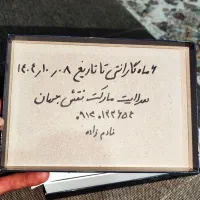 ۶ ماه گارانتی تا تاریخ ۱۴۰۴٫۱۰٫۰۸
موبایت مارکت نقش جهان
۰۹۱۳۰۱۴۴۶۵۴
خادم زاده